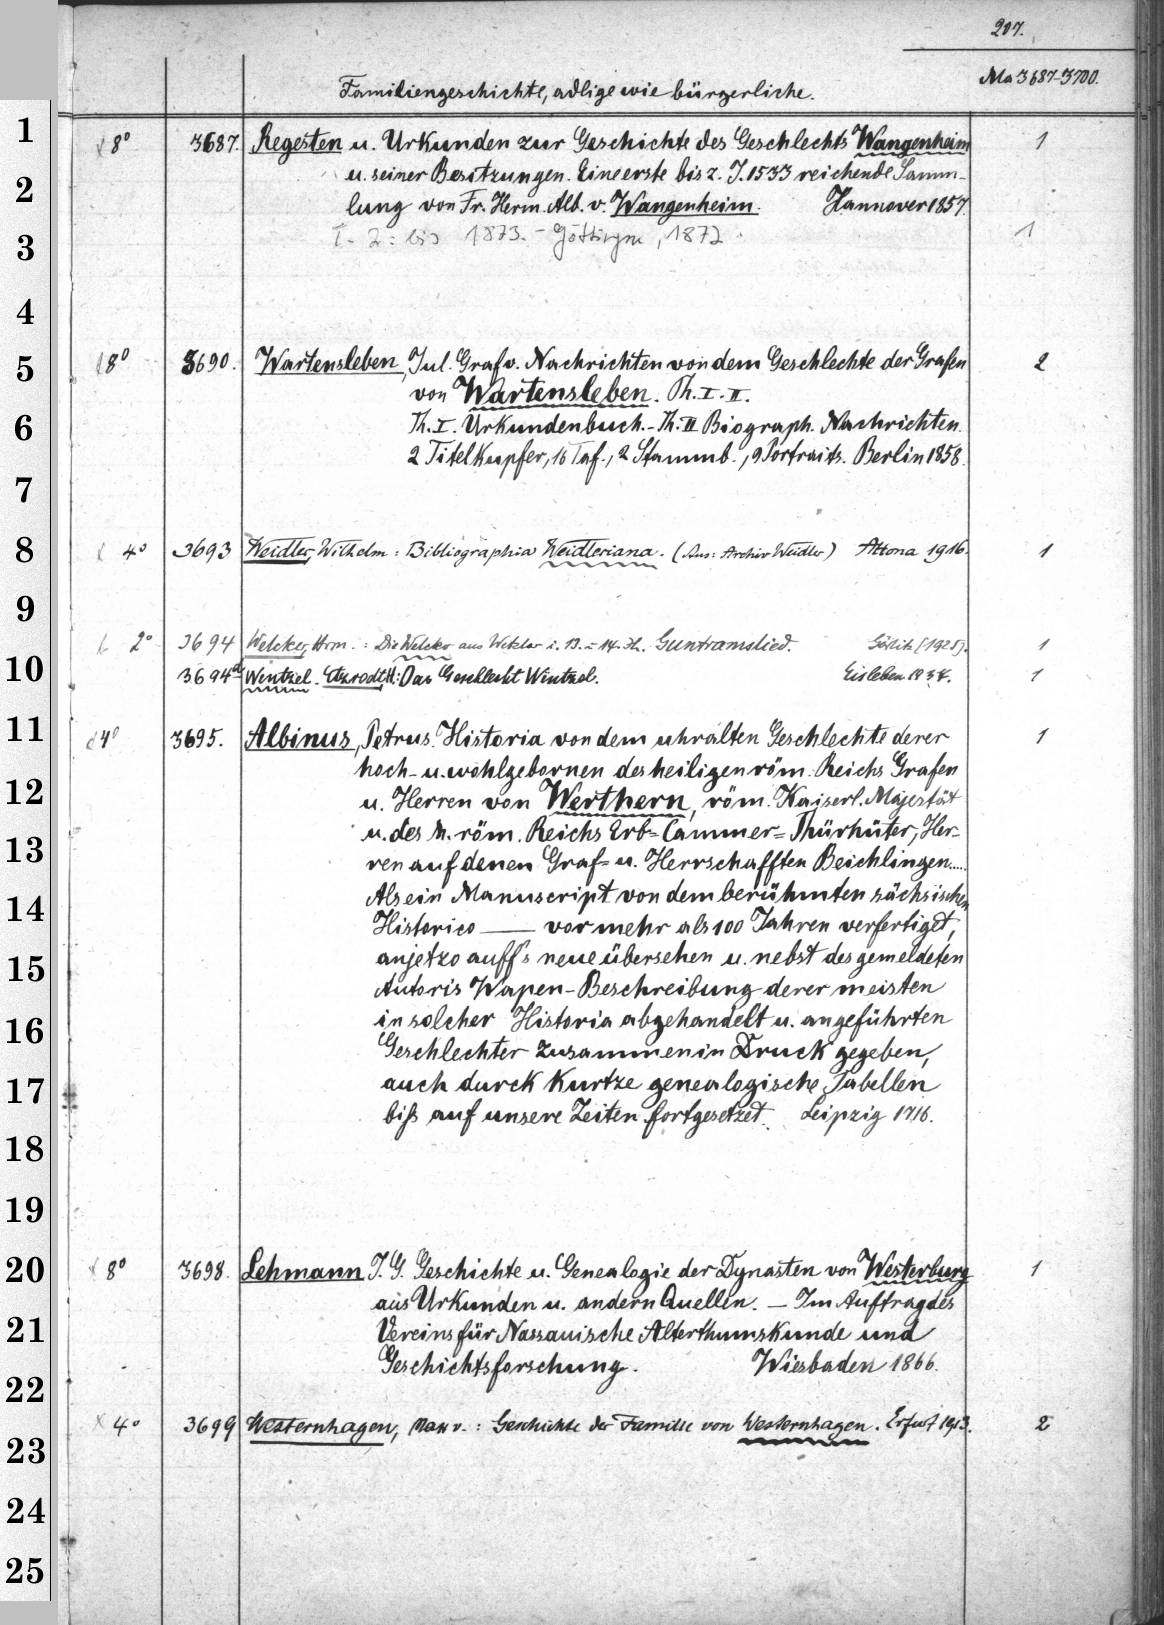 207.
Ma 3687-3700.
Familiengeschichte, adlige wie bürgerliche.
1
8° 3687. Regesten u. Urkunden zur Geschichte des Geschlechts Wangenheim 1
2
u. seiner Besitzungen. Eine erste bis z. J. 1533 reichende Samm-
lung von Fr. Herm. Alb. v. Wangenheim. Hannover 1857.
3
T. 2: bis 1873. - Göttingen, 1872. 1
4
5
8° 3690. Wartensleben, Jul. Graf v. Nachrichten von dem Geschlechte der Grafen 2
von Wartensleben. Th. I-II.
6
Th. I. Urkundenbuch. - Th. II Biograph. Nachrichten.
2 Titelkupfer, 16 Taf., 2 Stammb., 9 Portraits. Berlin 1858.
7
8
4° 3693 Weidler, Wilhelm: Bibliographia Weidleriana. (Aus: Archiv Weidler) Altona 1916. 1
9
2° 3694 Welcker, Hrm.: Die Welcker aus Wetzlar i. 13. - 14. Jh. Guntramslied. Görlitz [1925]. 1
10
3694a Wentzel. Etzrodt, H: Das Geschlecht Wentzel. Eisleben 1934. 1
11
4° 3695. Albinus, Petrus. Historia von dem uhralten Geschlechte derer 1
hoch- u. wohlgebornen des heiligen röm. Reichs Grafen
12
u. Herren von Werthern, röm. Kaiserl. Majestät
u. des h. röm. Reichs Erb=Cammer=Thürhüter, Her-
13
ren auf denen Graf= u. Herrschafften Beichlingen....
Als ein Manuscript von dem berühmten sächsischen
14
Historico —— vor mehr als 100 Jahren verfertiget,
15
anjetzo auff's neue übersehen u. nebst des gemeldeten
Autoris Wapen-Beschreibung derer meisten
16
in solcher Historia abgehandelt u. angeführten
Geschlechter zusammen in Druck gegeben,
17
auch durck kurtze genealogische Tabellen
biß auf unsere Zeiten fortgesetzet. Leipzig 1716.
18
19
20
8° 3698. Lehmann J. G. Geschichte u. Genealogie der Dynasten von Westerburg 1
aus Urkunden u. andern Quellen. — Im Auftrag des
21
Vereins für Nassauische Alterthumskunde und
Geschichtsforschung. Wiesbaden 1866.
22
4° 3699 Westernhagen, Max v.: Geschichte der Familie von Westernhagen. Erfurt 1913. 2
23
24
25